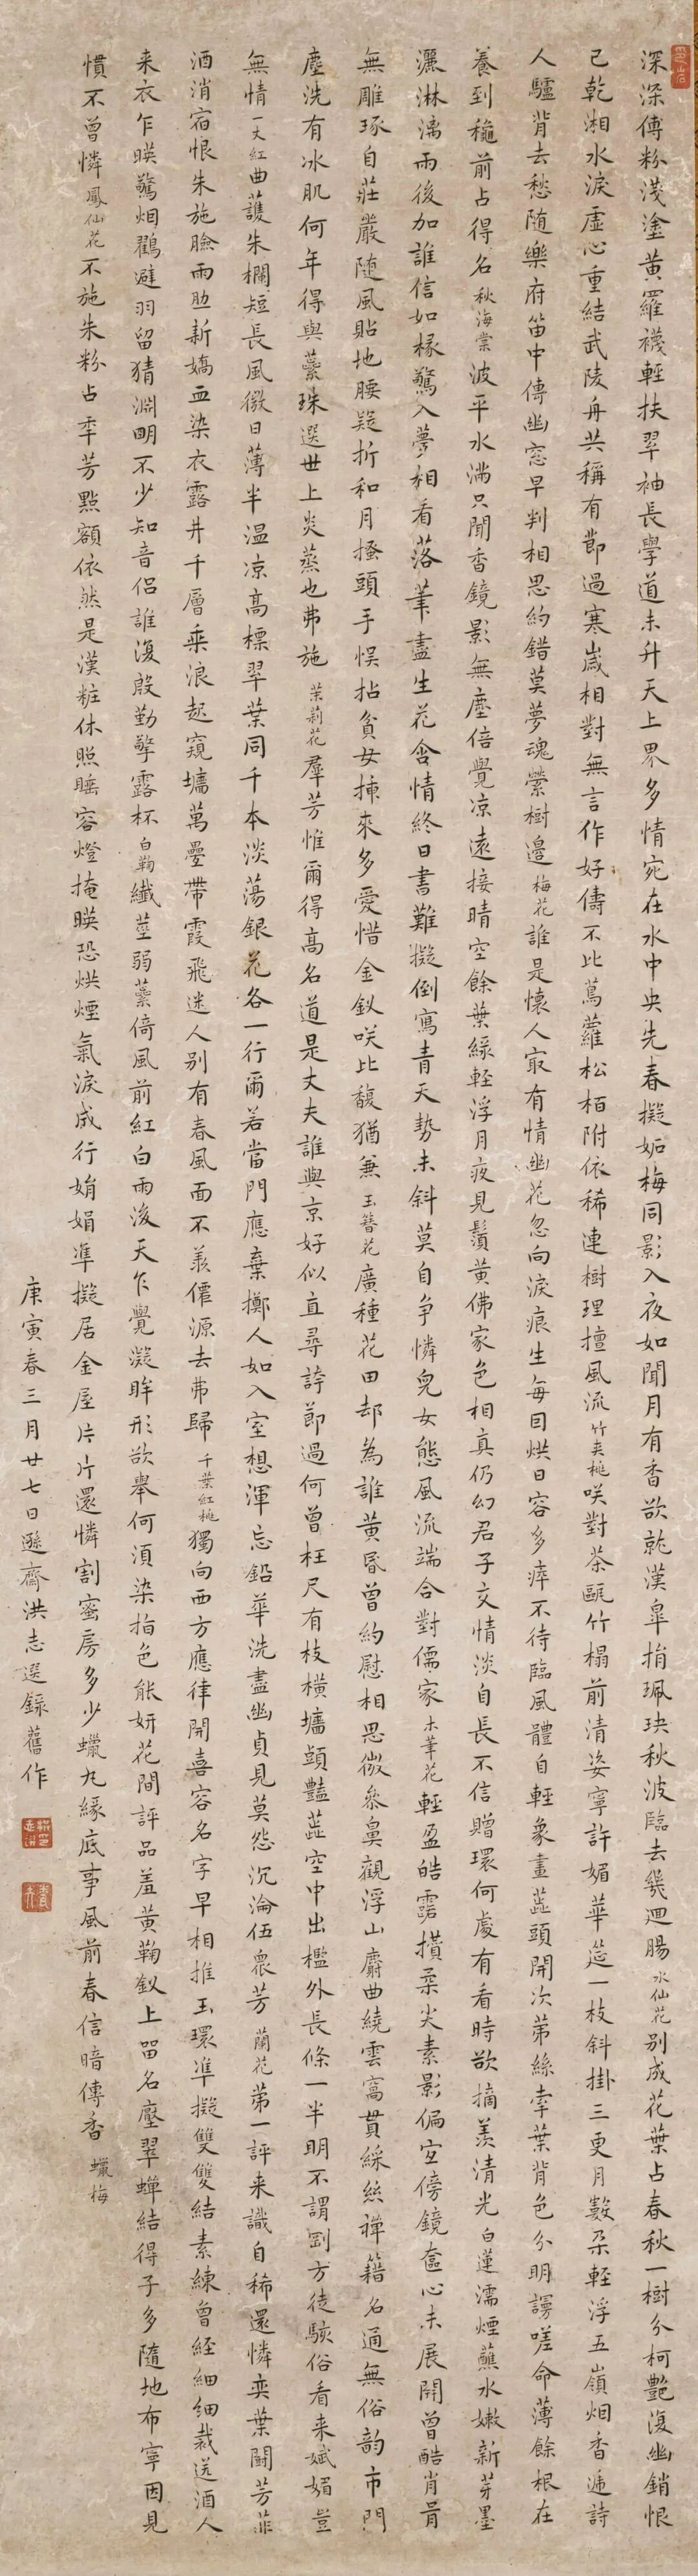 深深傅粉淺塗黃羅襪輕扶翠袖長學道未升天上界多情宛在水中央先春擬妬梅同影入夜如聞月有香欲就漢皐捐珮玦秋波臨去幾迴腸水仙花別成花葉占春秋一樹分柯艷復幽銷恨
已乾湘水淚虛心重結武陵舟共稱有節過寒歲相對無言作好儔不比蔦蘿松栢附依稀連樹理擅風流竹夾桃咲對茶甌竹榻前清姿寧許媚華筵一枝斜掛三更月數朶輕浮五嶺烟香遞詩
人驢背去愁随樂府笛中傳幽窓早判相思約錯莫夢魂縈樹邉梅花誰是懷人㝡有情幽花忽向淚痕生每因烘日容多瘁不待臨風體自輕象晝蕋頭開次第絲牽葉背色分明謾嗟命薄餘根在
養到穐前占得名秋海棠波平水滿只聞香鏡影無塵倍覺凉遠接晴空餘葉綠輕浮月夜見鬚黃佛家色相真仍幻君子交情淡自長不信贈環何處有看時欲摘羡清光白蓮濡煙蘸水嫩新芽墨
灑淋漓雨後加誰信如椽驚入夢相看落筆盡生花含情終日書難擬倒寫青天勢未斜莫自争憐兒女態風流端合對儒家木筆花輕盈皓露攢柔尖素影偏宜傍鏡奩心未展開曾酷肖骨
無雕琢自莊嚴随風貼地腰疑折和月搔頭手悮拈貧女揷來多愛惜金釵咲比馥猶兼玉簪花廣種花田却為誰黃昏曾約慰相思微叅鼻觀浮山麝曲繞雲窩貫綵絲禪籍名通無俗韵市門
塵洗有冰肌何年得與蘂珠選世上炎蒸也弗施茉莉花羣芳惟爾得高名道是丈夫誰與京好似直尋誇節過何曾枉尺有枝橫墻頭豔蕋空中出檻外長條一半明不謂剛方徒駭俗看来娬媚豈
無情一丈紅曲護朱欄短長風微日薄半温凉高標翠葉同千本淡蕩銀花各一行爾若當門應棄擲人如入室想渾忘鉛華洗盡幽貞見莫怨沉淪伍衆芳蘭花第一評来識自稀還憐奕葉鬪芳菲
酒消宿恨朱施臉雨助新嬌血染衣露井千層乘浪起窺墻萬疊帶霞飛迷人别有春風面不羨僊源去弗歸千葉紅桃獨向西方應律開喜容名字早相推玉環凖擬雙雙結素練曾經細細裁送酒人
来衣乍暎驚烟鸛避羽留猜淵明不少知音侶誰復殷勤擎露杯白鞠纖莖弱蘂倚風前紅白雨後天乍覺凝眸形欲舉何須染指色能妍花間評品羞黃鞠釵上留名壓翠蟬結得子多隨地布寧因見
慣不曾憐鳳仙花不施朱粉占年芳點額依然是漢粧休照睡容燈掩暎恐烘煙氣淚成行娟娟凖擬居金屋片片還憐割蜜房多少蠟丸緣底事風前春信暗傳香蠟梅
庚寅春三月廿七日遜齋洪志選錄舊作